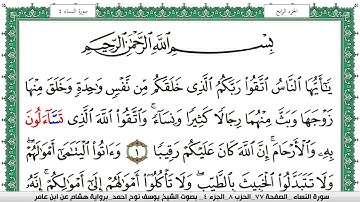 الجزء الرابع
سورة النساء ٤
بِسْمِ اللَّهِ الرَّحْمَٰنِ الرَّحِيمِ
يَٰٓأَيُّهَا النَّاسُ اتَّقُوا رَبَّكُمُ الَّذِي خَلَقَكُم مِّن نَّفْسٍ وَٰحِدَةٍ وَخَلَقَ مِنْهَا
زَوْجَهَا وَبَثَّ مِنْهُمَا رِجَالًا كَثِيرًا وَنِسَآءً ۚ وَاتَّقُوا اللَّهَ الَّذِي تَسَّآءَلُونَ
بِهِۦ وَالْأَرْحَامَ ۚ إِنَّ اللَّهَ كَانَ عَلَيْكُمْ رَقِيبًا ١ وَءَاتُوا الْيَتَٰمَىٰٓ أَمْوَٰلَهُمْ ۖ
وَلَا تَتَبَدَّلُوا الْخَبِيثَ بِالطَّيِّبِ ۖ وَلَا تَأْكُلُوٓا أَمْوَٰلَهُمْ إِلَىٰٓ أَمْوَٰلِكُمْ ۚ إِنَّهُۥ
سورة النساء . الصفحة ٧٧ الحزب ٨ الجزء ٤ بصوت الشيخ يوسف نوح احمد . برواية هشام عن ابن عامر